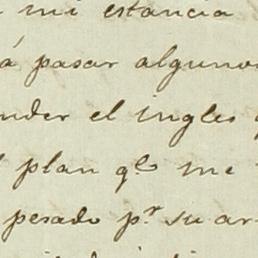 mi estancia
á pasar alguno
nder el ingles
plan q.e me
pesado p.r su ar